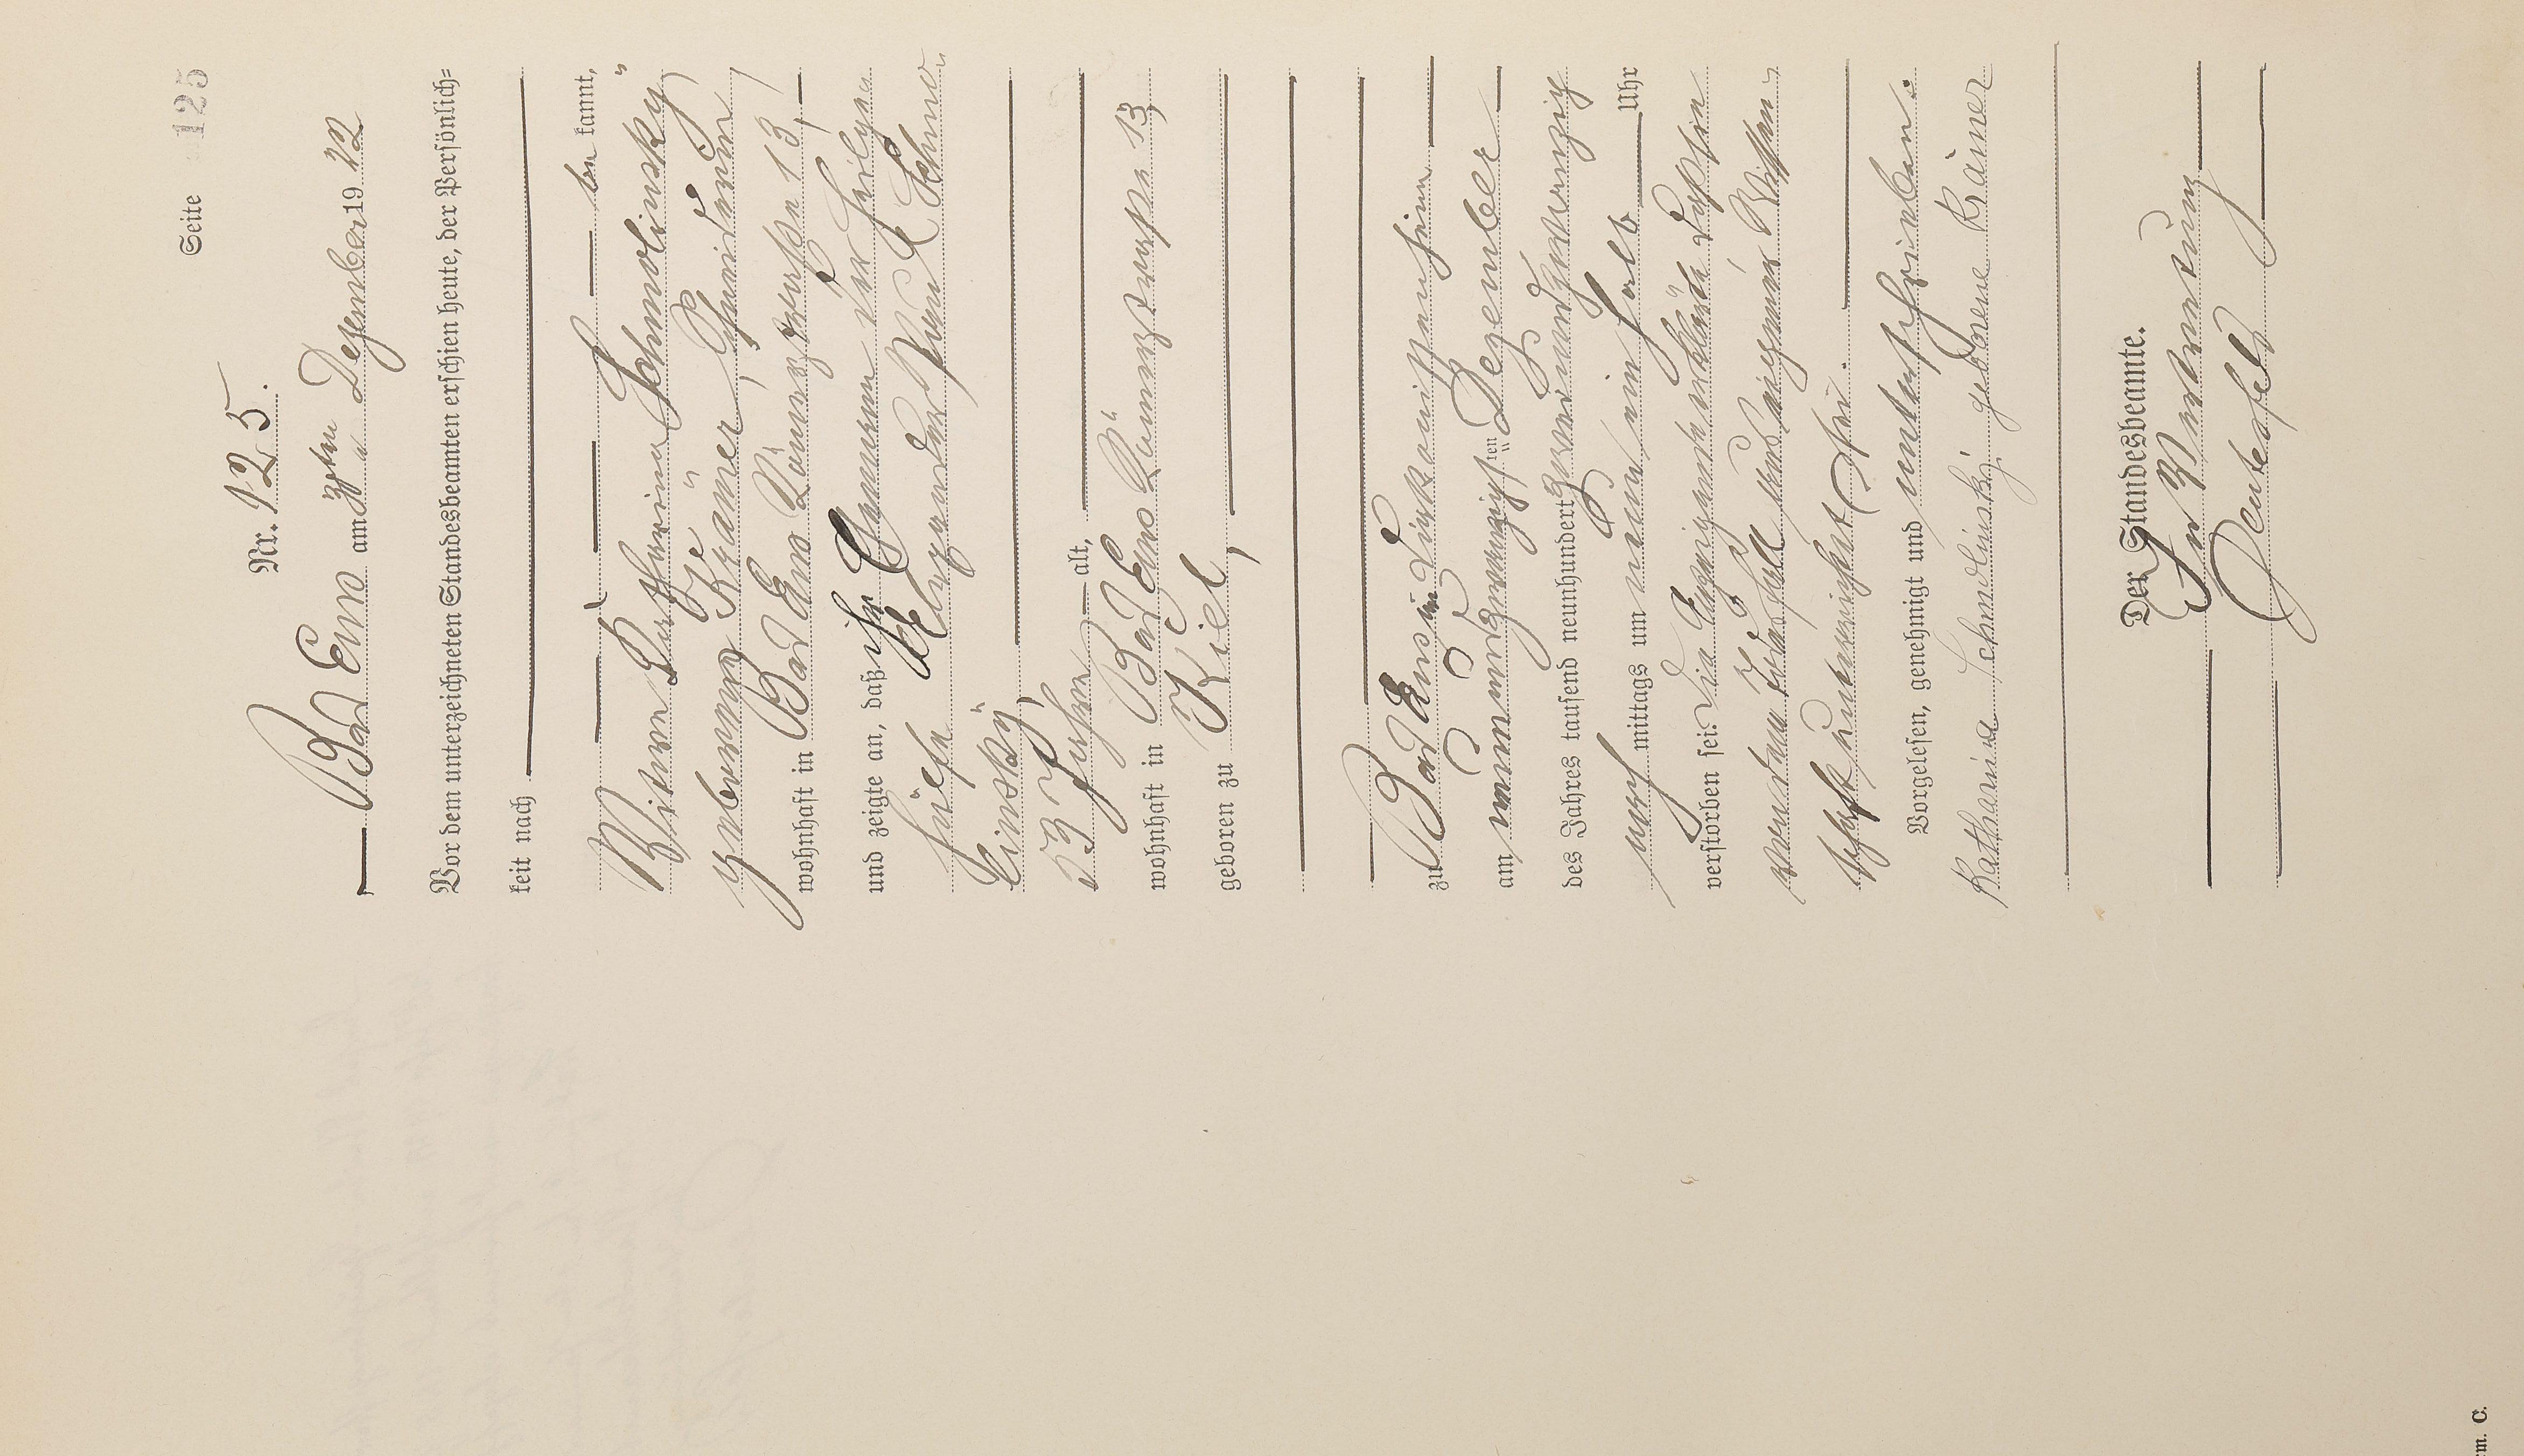 Seite 125
Nr. 125.
Bad Ems am 30ten Dezember 1922
Vor dem unterzeichneten Standesbeamten erschien heute, der Persönlich=
keit nach
be kannt,
Witwe Katharina Schmolinsky
geborene Krämer,
wohnhaft in Bad Ems Römerstraße 13,
und zeigte an, daß ihr Ehemann der Heilge=
hülfe Paul Schmo=
linsky,
53 Jahre alt,
wohnhaft in Bad Ems Römerstraße 13,
geboren zu Kiel,
zu Bad Ems im Diakonissenheim
am neunundzwanzigsten Dezember
des Jahres tausend neunhundert zweiundzwanzig
nach mittags um neun ein halb Uhr
verstorben sei. Die Anzeigende erklärte daß sie
von dem Todesfall aus eigener Wissen=
schaft unterrichtet sei.
Vorgelesen, genehmigt und unterschrieben.
Katharina Schmolinsky geborene Krämer
Der Standesbeamte.
In Vertretung